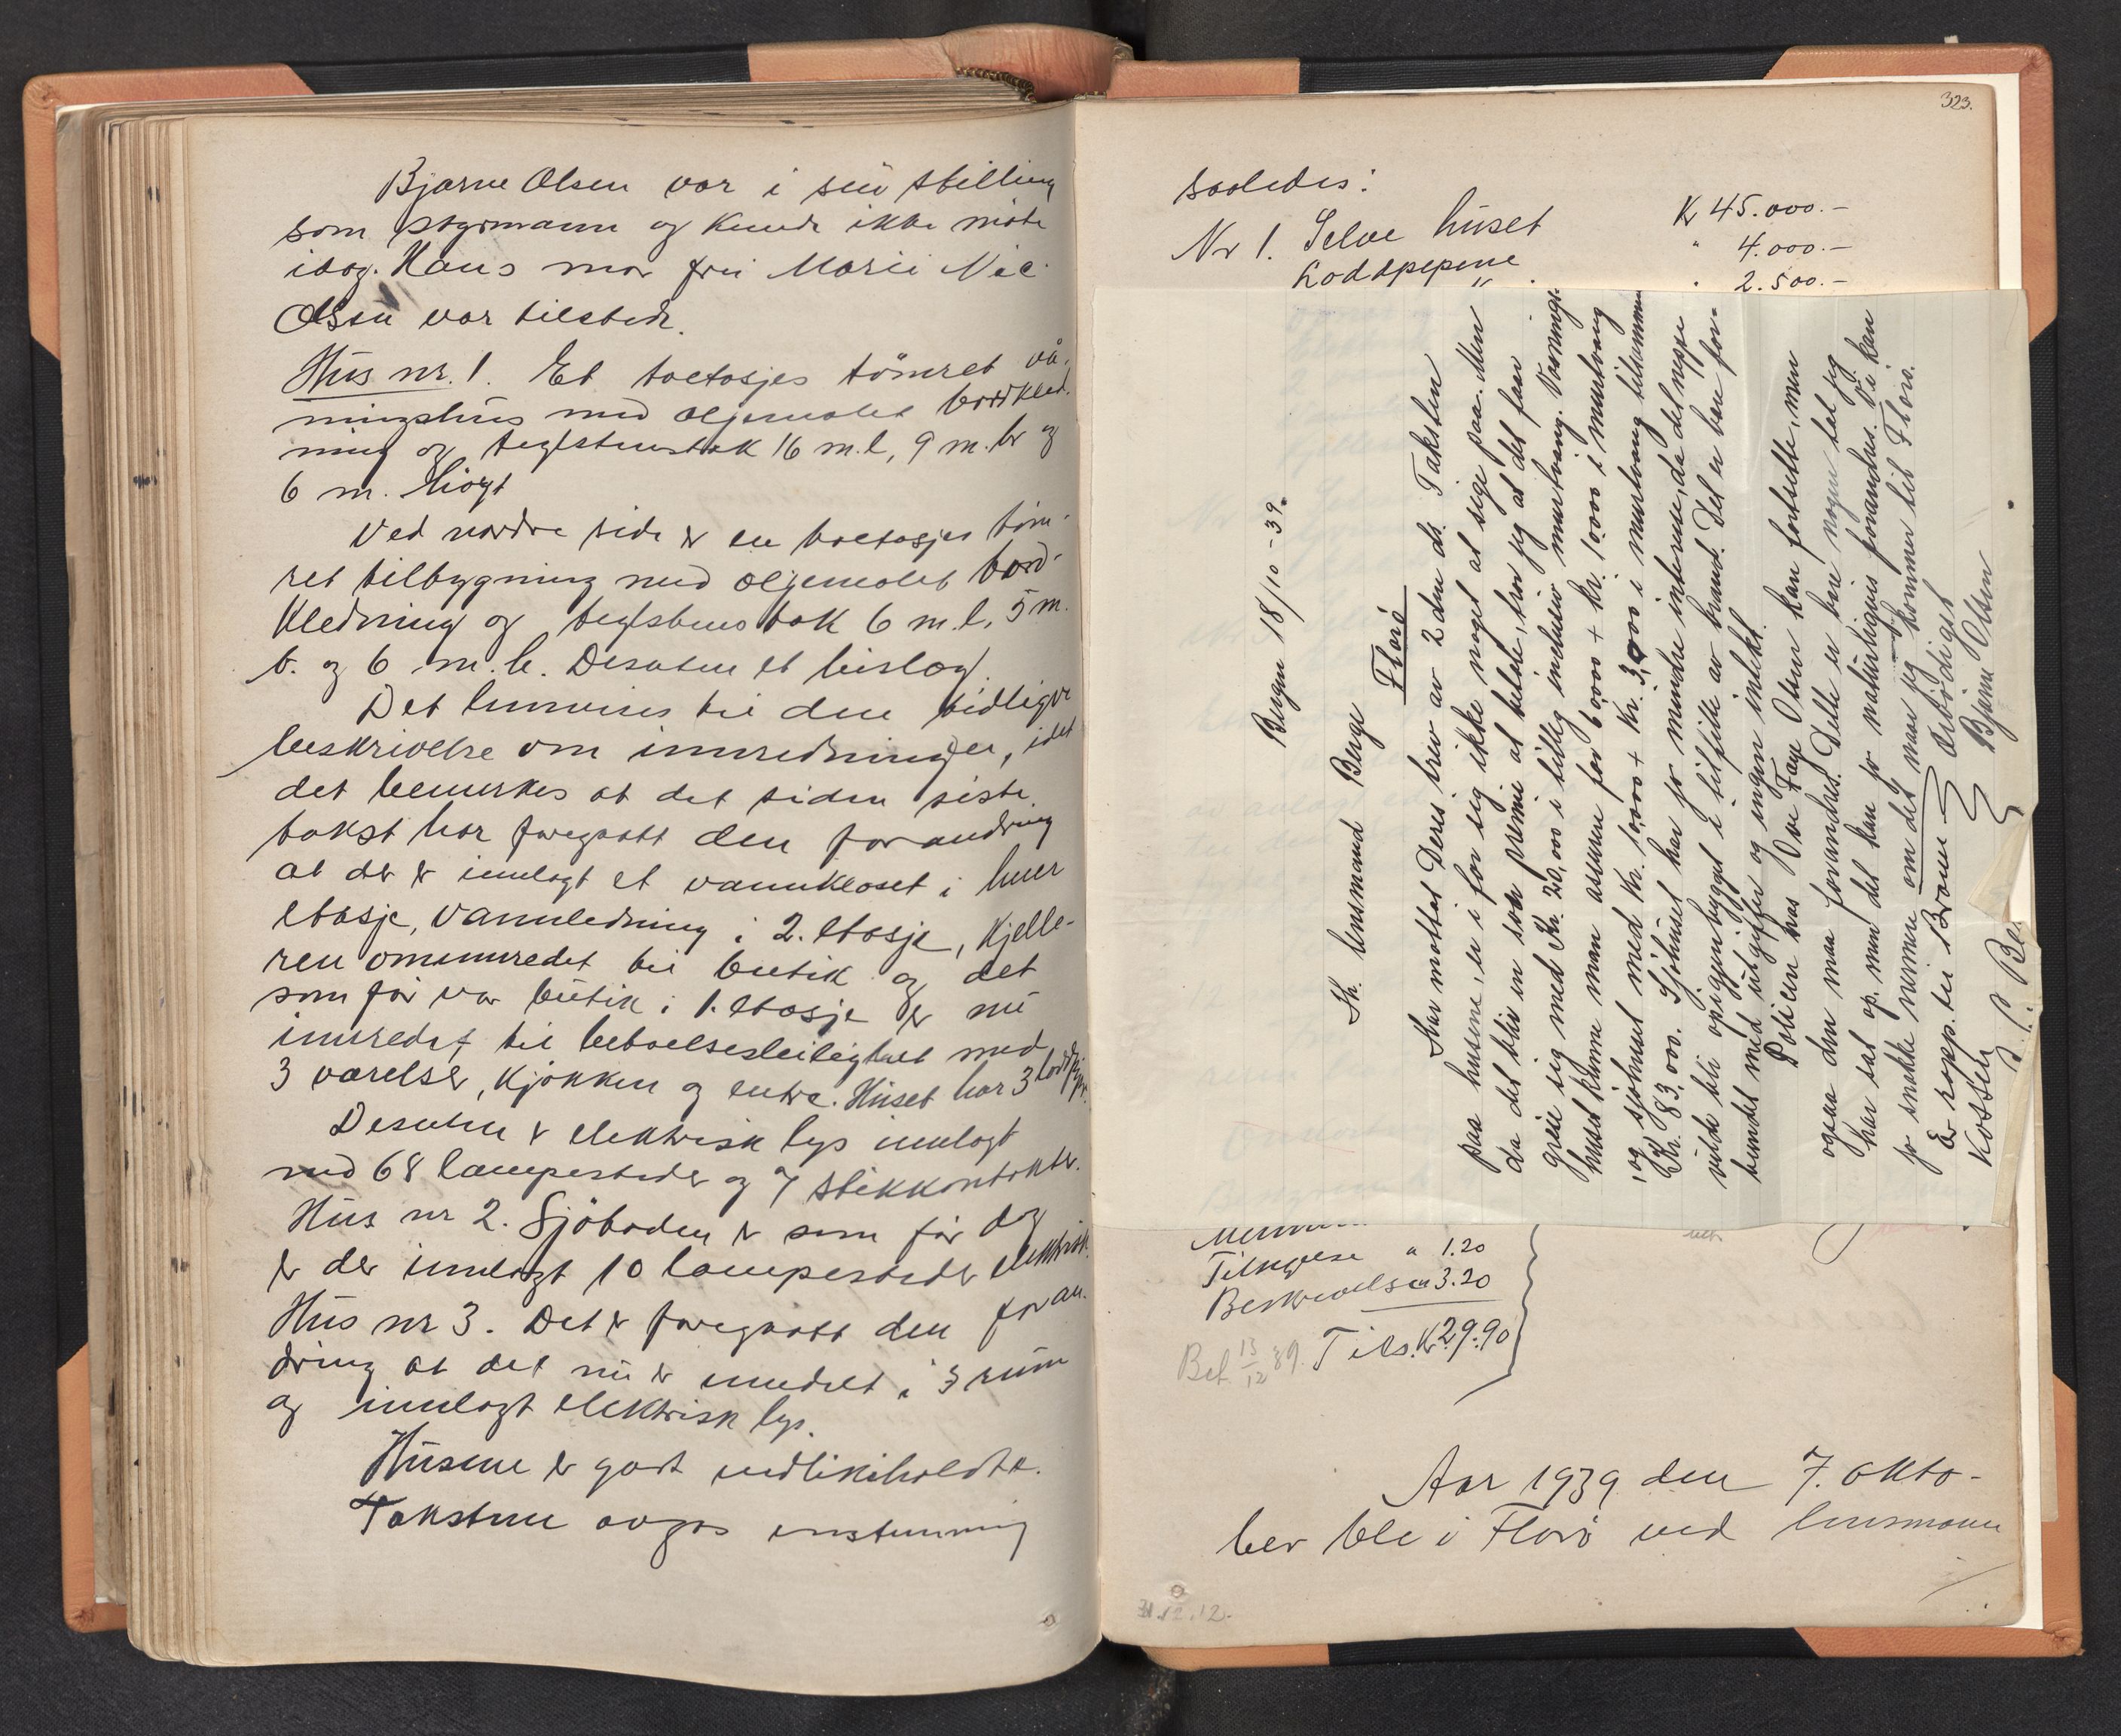 Bjarne Olsen var i sin stilling
som skogsmann og kunde ikke møte
idag. Hans mor fru Marie Nic.
Olsen var tilstede.
Hus nr. 1. Et toetasjes tømret vå-
ningshus med oljemalet bordkled-
ning og teglstenstak 16 m.l, 9 m.br og
6 m. høgt
Ved nordre side er en toetasjes tøm-
ret tilbygning med oljemalet bord-
kledning og teglstenstak 6 m.l. 5 m.
b. og 6 m. h. Desuten et bislag.
Det henvises til den tidligere
beskrivelse om innredningen, idet
det bemerkes at det siden siste
takst har foregaatt den forandring
at der er innlagt et vannkloset i hver
etasje, vannledning i 2. etasje, kjelle-
ren ominnredet til butik og det
som før var butik i 1. etasje er nu
innredet til beboelsesleilighet med
3 værelser, kjøkken og entre. Huset har 3 loddpiper.
Desuten er elektrisk lys innlagt
med 68 lampesteder og 7 stikkontakter.
Hus nr 2. Sjøboden er som før dog
er der innlagt 10 lampesteder elektrisk.
Hus nr 3. Det er foregaatt den foran-
dring at det nu er inndelt i 3 rum
og innlagt elektrisk lys.
Husene er godt vedlikeholdte.
Takstene avgas enstemmig
323.
saaledes:
Nr 1. Selve huset Kr 45.000.-
Loddpipene " 4.000.-
" 2.500.-
Bergen 18/10-39.
Hr. lensmand Berge
Florø
Har mottat Deres brev av 2den ds. Taksten
paa husene, er i for sig ikke noget at sige paa. Men
da det blir en svær premie at betale, tror jeg at det faar
greie sig med Kr. 20,000 i tillæg inclusiv murtvang. Vaanings-
huset kunne man assurere for 60,000 + kr. 10,000 i murtvang
og sjøhuset med kr. 10,000 + kr. 3,000 i murtvang tilsammen
Kr. 83,000. Sjøhuset har jo mindre interesse, da det neppe
vilde bli opigjenbygget i tilfælde av brand. Det er bare for-
bundet med utgifter og ingen intekt.
Policen hos Ove Faye Olsen kan fortsætte, men
ogsaa den maa forandres. Dette er bare nogen tal jeg
har sat op, men det kan jo naturligvis forandres. Vi kan
jo snakke nærmere om det naar jeg kommer til Florø.
Er sopp. til Brann
Kosster
Ærbødigst
Bjarne Olsen
Tilsynelse " 1.20
Beskrivelsen 3.20
Tils. Kr 29.90
Bet. 13/12 39.
Aar 1939 den 7. okto-
ber ble i Florø ved lensmann
31.12.12.